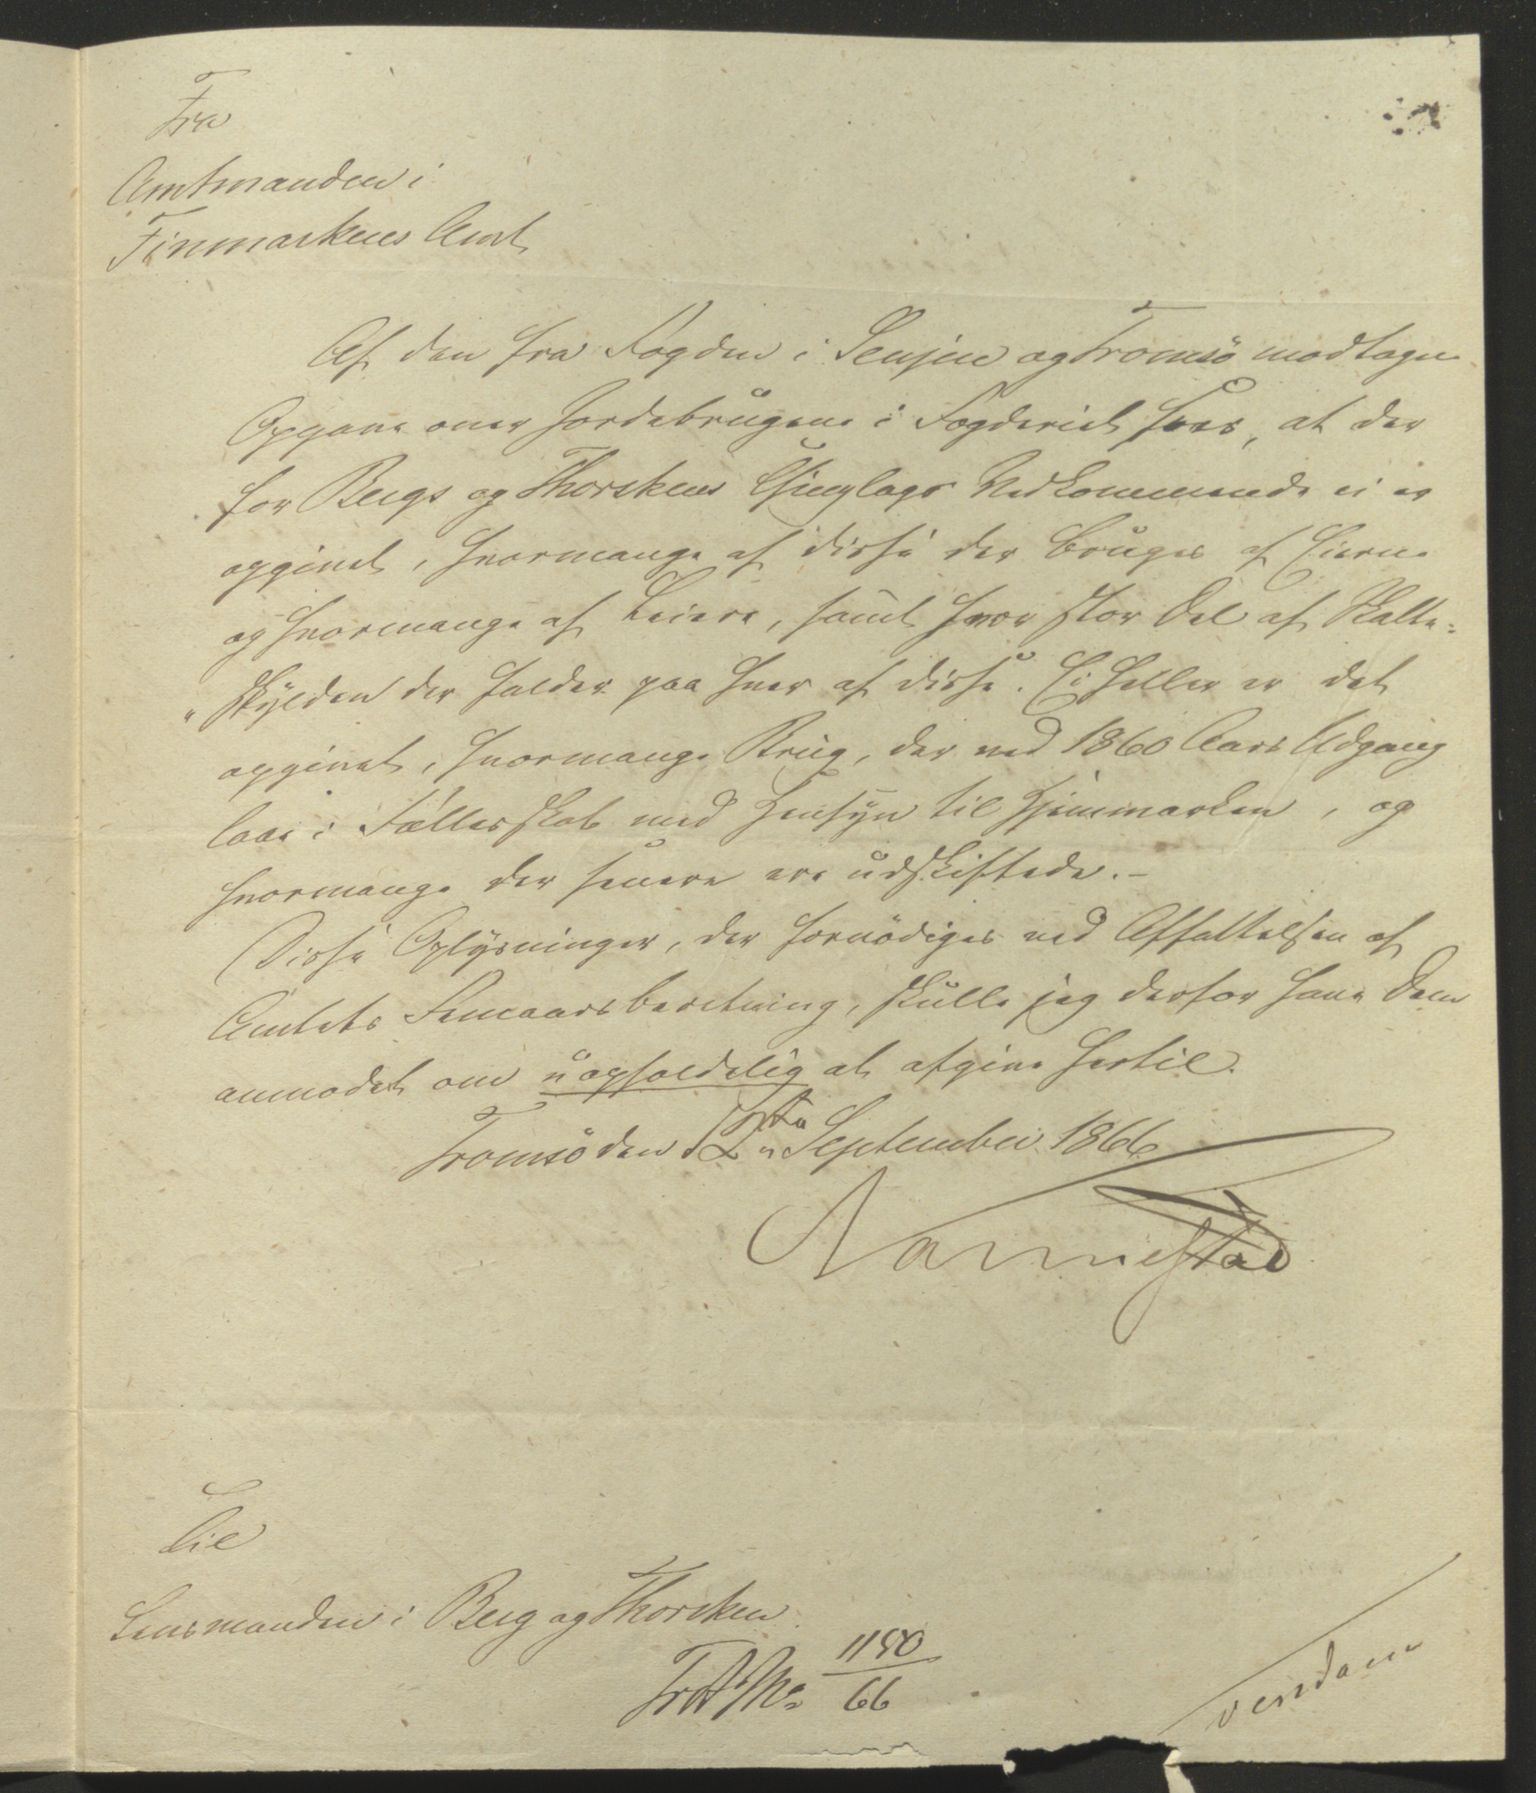 Fra
Amtmanden i
Finmarkens Amt
Af den fra Fogden i Senjen og Tromsö modtagne
Opgave over Jordebrugene i Fogderiet sees, at der
for Bergs og Thorskens Thinglags Vedkommende ei er
opgivet, hvormange af disse der bruges af Eierne
og hvormange af Leiere, samt hvor stor Del af Skatte-
skylden der falder paa hver af disse. Ei heller er det
opgivet, hvormange Brug, der ved 1860 Aars Udgang
laae i Fællesskab med Hensyn til Hjemmarken, og
hvormange der senere ere udskiftede.-
Disse Oplysninger, der fornödiges ved Affattelsen af
Amtets Femaarsberetning, skulle jeg derfor have Dem
anmodet om uopholdelig at afgive hertil.
Tromsö den 12te September 1866
Nannestad
Til
Lensmanden i Berg og Thorsken
1150
66
vendom